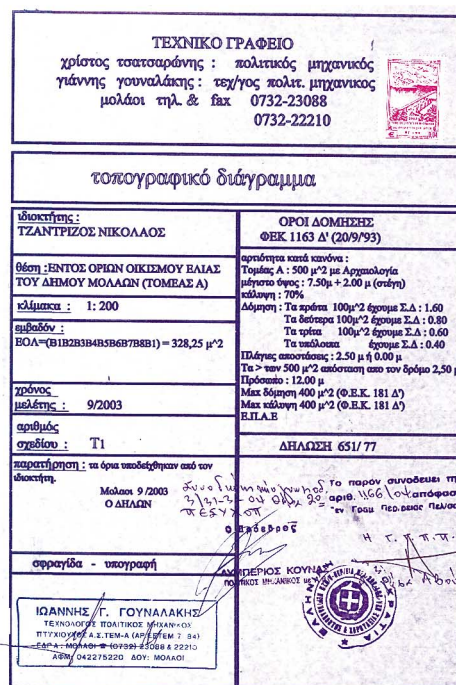 ΤΕΧΝΙΚΟ ΓΡΑΦΕΙΟ
χρίστος τσατσαρώνης : πολιτικός μηχανικός
γιάννης γουναλάκης : τεχ/γος πολιτ. μηχανικος
μολάοι τηλ. & fax 0732-23088
0732-22210
τοπογραφικό διάγραμμα
ιδιοκτήτης :
ΤΖΑΝΤΡΙΖΟΣ ΝΙΚΟΛΑΟΣ
θέση :ΕΝΤΟΣ ΟΡΙΩΝ ΟΙΚΙΣΜΟΥ ΕΛΙΑΣ
ΤΟΥ ΔΗΜΟΥ ΜΟΛΑΩΝ (ΤΟΜΕΑΣ Α)
κλίμακα : 1: 200
εμβαδόν :
ΕΟΛ=(Β1Β2Β3Β4Β5Β6Β7Β8Β1) = 328,25 μ^2
χρόνος
μελέτης : 9/2003
αριθμός
σχεδίου : Τ1
παρατήρηση : τα όρια υποδείχθηκαν από τον
ιδιοκτήτη.
Μολαοι 9/2003
Ο ΔΗΛΩΝ
σφραγίδα - υπογραφή
ΙΩΑΝΝΗΣ Γ. ΓΟΥΝΑΛΑΚΗΣ
ΤΕΧΝΟΛΟΓΟΣ ΠΟΛΙΤΙΚΟΣ ΜΗΧΑΝΙΚΟΣ
ΠΤΥΧΙΟΥΧΟΣ Α.Σ.ΤΕΜ-Α (ΑΡ ΕΕΤΕΜ 7 84)
ΕΔΡΑ : ΜΟΛΑΟΙ ☎ (0732) 23088 & 22210
ΑΦΜ: 042275220 ΔΟΥ: ΜΟΛΑΟΙ
ΟΡΟΙ ΔΟΜΗΣΗΣ
ΦΕΚ 1163 Δ' (20/9/'93)
αρτιότητα κατά κανόνα :
Τομέας Α : 500 μ^2 με Αρχαιολογία
μέγιστο ύψος : 7.50μ + 2.00 μ (στέγη)
κάλυψη : 70%
Δόμηση : Τα πρώτα 100μ^2 έχουμε Σ.Δ : 1.60
Τα δεύτερα 100μ^2 έχουμε Σ.Δ : 0.80
Τα τρίτα 100μ^2 έχουμε Σ.Δ : 0.60
Τα υπόλοιπα έχουμε Σ.Δ : 0.40
Πλάγιες αποστάσεις : 2.50 μ ή 0.00 μ
Τα > των 500 μ^2 απόσταση απο τον δρόμο 2,50 μ
Πρόσωπο : 12.00 μ
Max δόμηση 400 μ^2 (Φ.Ε.Κ. 181 Δ')
Max κάλυψη 400 μ^2 (Φ.Ε.Κ. 181 Δ')
Ε.Π.Α.Ε
ΔΗΛΩΣΗ 651/ 77
Το παρόν συνοδευει τη
αριθ. 1166/04 απόφασ
Ο Πρόεδρος
Η Γ.Π.Π.Π.
ΛΥΜΠΕΡΙΟΣ ΚΟΥΝ
ΠΟΛΙΤΙΚΟΣ ΜΗΧΑΝΙΚΟΣ